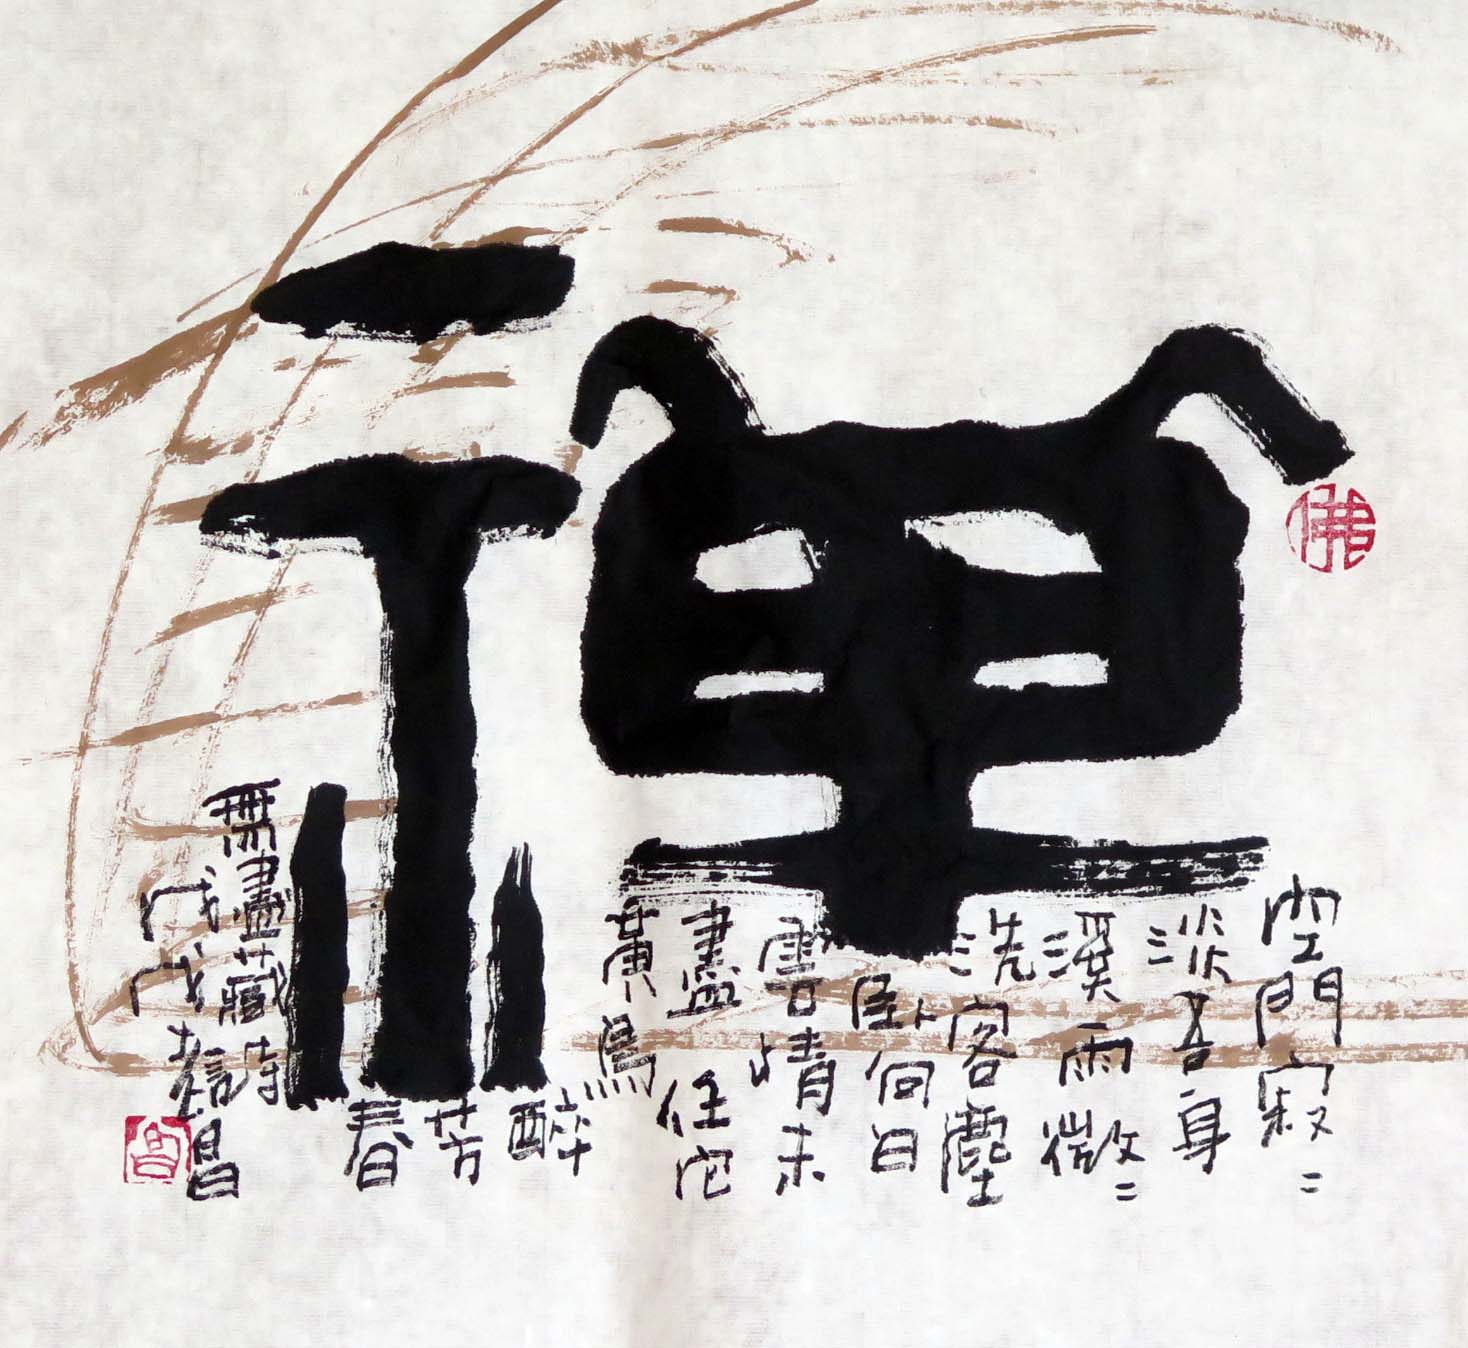 禪
佛
空門寂〻
淡吾身
溪雨微〻
洗客塵
臥向白
雲情未
盡任它
黃鳥
醉
芳
春
無盡藏詩
戊戌 昌